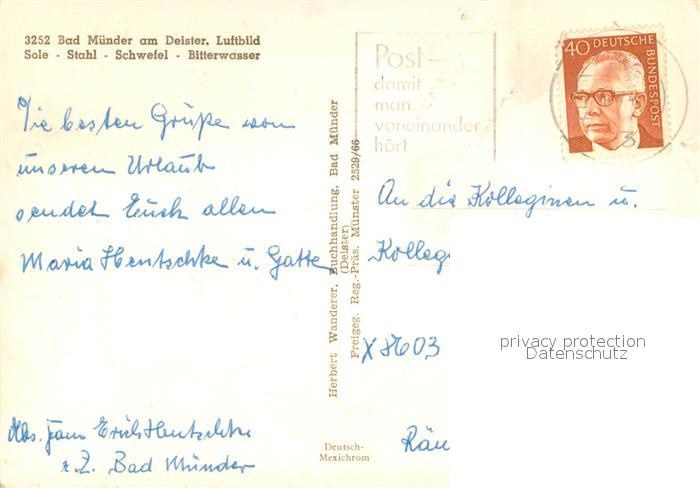 3252 Bad Münder am Deister. Luftbild
Sole - Stahl - Schwefel - Bitterwasser
Die besten Grüße von
unseren Urlaub
sendet Euch allen
Maria Hentschke u. Gatte
Abs. Fam Erich Hentschke
z. Z. Bad Münder
Herbert Wanderer, Buchhandlung, Bad Münder
(Deister)
Freigeg. Reg.-Präs. Münster 2529/66
Deutsch-
Mexichrom
Post-
damit
man
voneinander
hört
40 DEUTSCHE
BUNDESPOST
3
An die Kolleginen u.
Kolleg
X 8603
privacy protection
Datenschutz